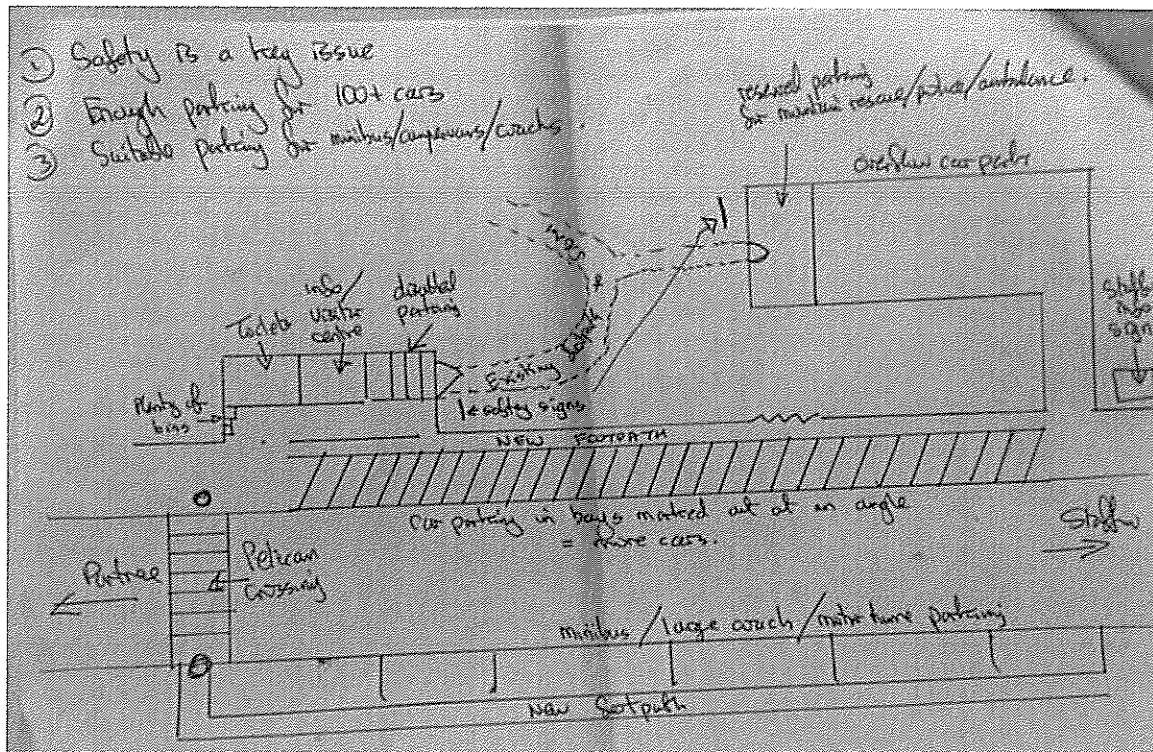 ① Safety is a key issue
② Enough parking for 100+ cars
③ Suitable parking for minibus/campervans/coachs.
reserved parking
for mountain rescue/police/ambulance.
overflow car park
Toilets
info/
visitor
centre
disabled
parking
Existing footpath
Staffin
info
sign
Plenty of
bins
safety signs
NEW FOOTPATH
Car parking in bays marked out at an angle
= more cars.
Portree
Pelican
Crossing
Staffin
minibus/large coach/motorhome parking
New footpath